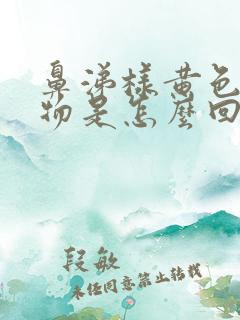 鼻涕样黄色
物是怎么回
段敏
未经同意禁止转载